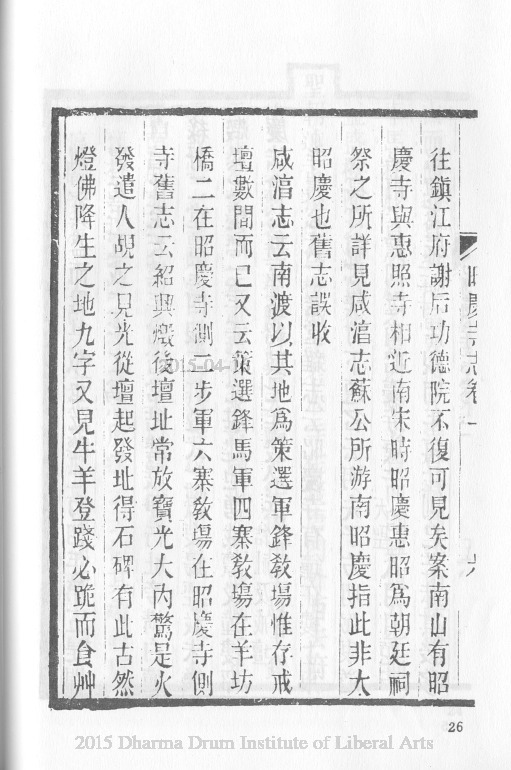 昭慶寺志卷一 六
往鎮江府謝后功德院不復可見矣案南山有昭
慶寺與惠照寺相近南宋時昭慶惠昭為朝廷祠
祭之所詳見咸淳志蘇公所游南昭慶指此非大
昭慶也舊志誤收
咸淳志云南渡以其地為策選軍鋒教場惟存戒
壇數間而已又云策選鋒馬軍四寨教場在羊坊
橋二在昭慶寺側一步軍六寨教場在昭慶寺側
寺舊志云紹興燬後壇址常放寶光大內驚是火
發遣人覘之見光從壇起發址得石碑有此古然
燈佛降生之地九字又見牛羊登踐必跪而食艸
2015-04-1
26
2015 Dharma Drum Institute of Liberal Arts